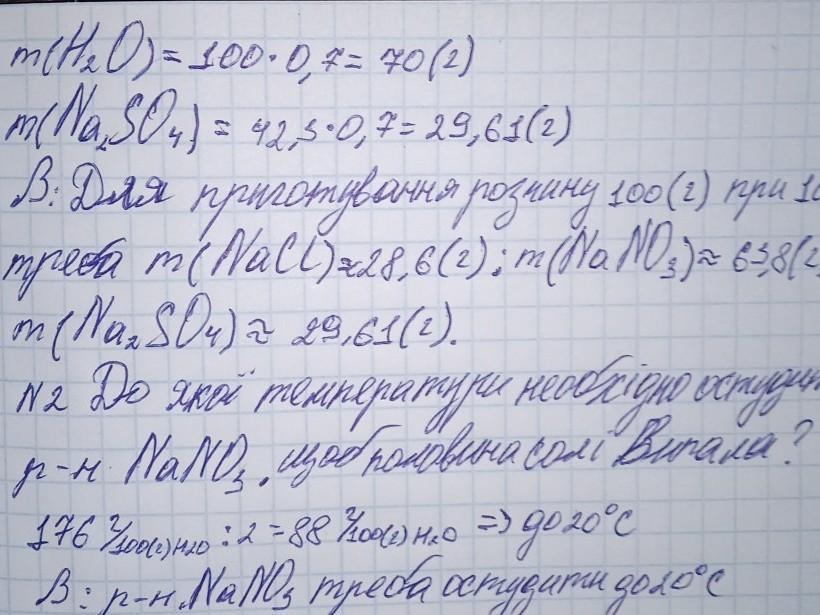 m(H₂O) = 100·0,7 = 70(г)
m(Na₂SO₄) = 42,3·0,7 = 29,61(г)
В: Для приготування розчину 100(г) при 10
треба m(NaCl)≈28,6(г); m(NaNO₃)≈63,8(г)
m(Na₂SO₄)≈ 29,61(г).
N2 До якої температури необхідно остудит
р-н NaNO₃, щоб половина солі Випала?
176 г/100(г)H₂O : 2 = 88 г/100(г)H₂O => до 20°C
В: р-н. NaNO₃ треба остудити до 20°C